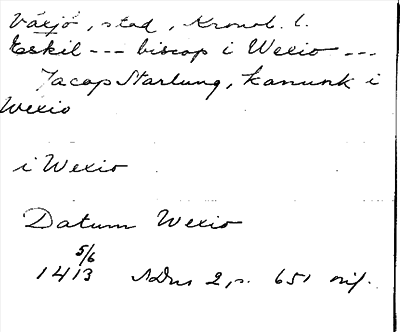 Växjö, stad, Kronob. l.
Eskil --- biscop i Wexio ---
Jacop Starlung, kanunk i
Wexio
i Wexio
Datum Wexio
5/6
1413 SDns 2, s. 651 orig.